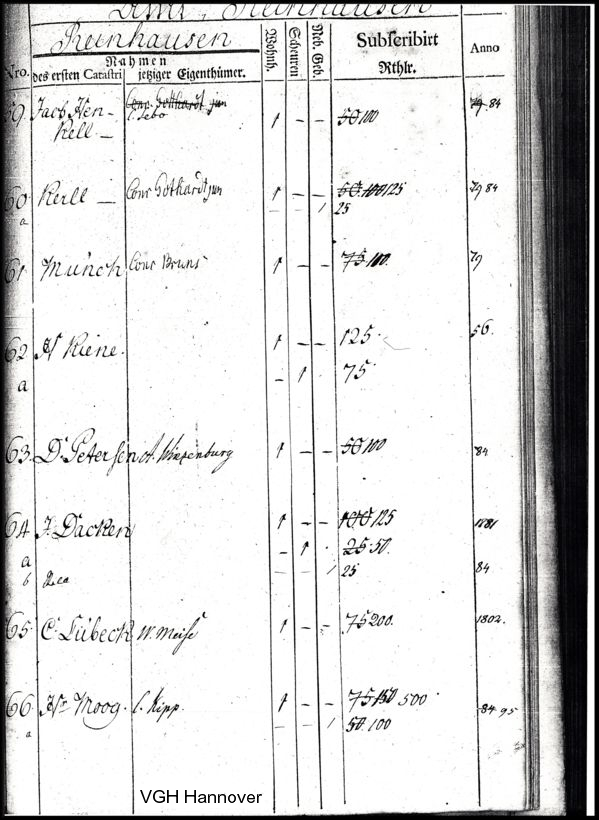 Reinhausen
Nro. Nahmen Wohnh. Scheuren Neb. Geb. Subscribirt Anno
des ersten Catastri jetziger Eigenthümer. Rthlr.
59 Jacb Hen- Conr Gotthardt jun 1 – – 50 100 79. 84
kell –
60 Kerll – Conr Gothardt jun 1 – – 50. 100 125 79 84
a – – 1 25
61 Münch Conr Bruns 1 – – 75 100. 79
62 Riene. 1 – – 125. 56.
a – 1 75
63. Dr Petersen 1 – – 50 100 84
64 J. Dacken 1 – – 100 125 1781
a – 1 . 25. 50.
b – – 1 25 84
65 C. Lübeck W. Meise 1 – – 75 200. 1802.
66 Moog. C. Kipp. 1 – – 75 150 500 84. 95
a – – 1 50. 100
VGH Hannover